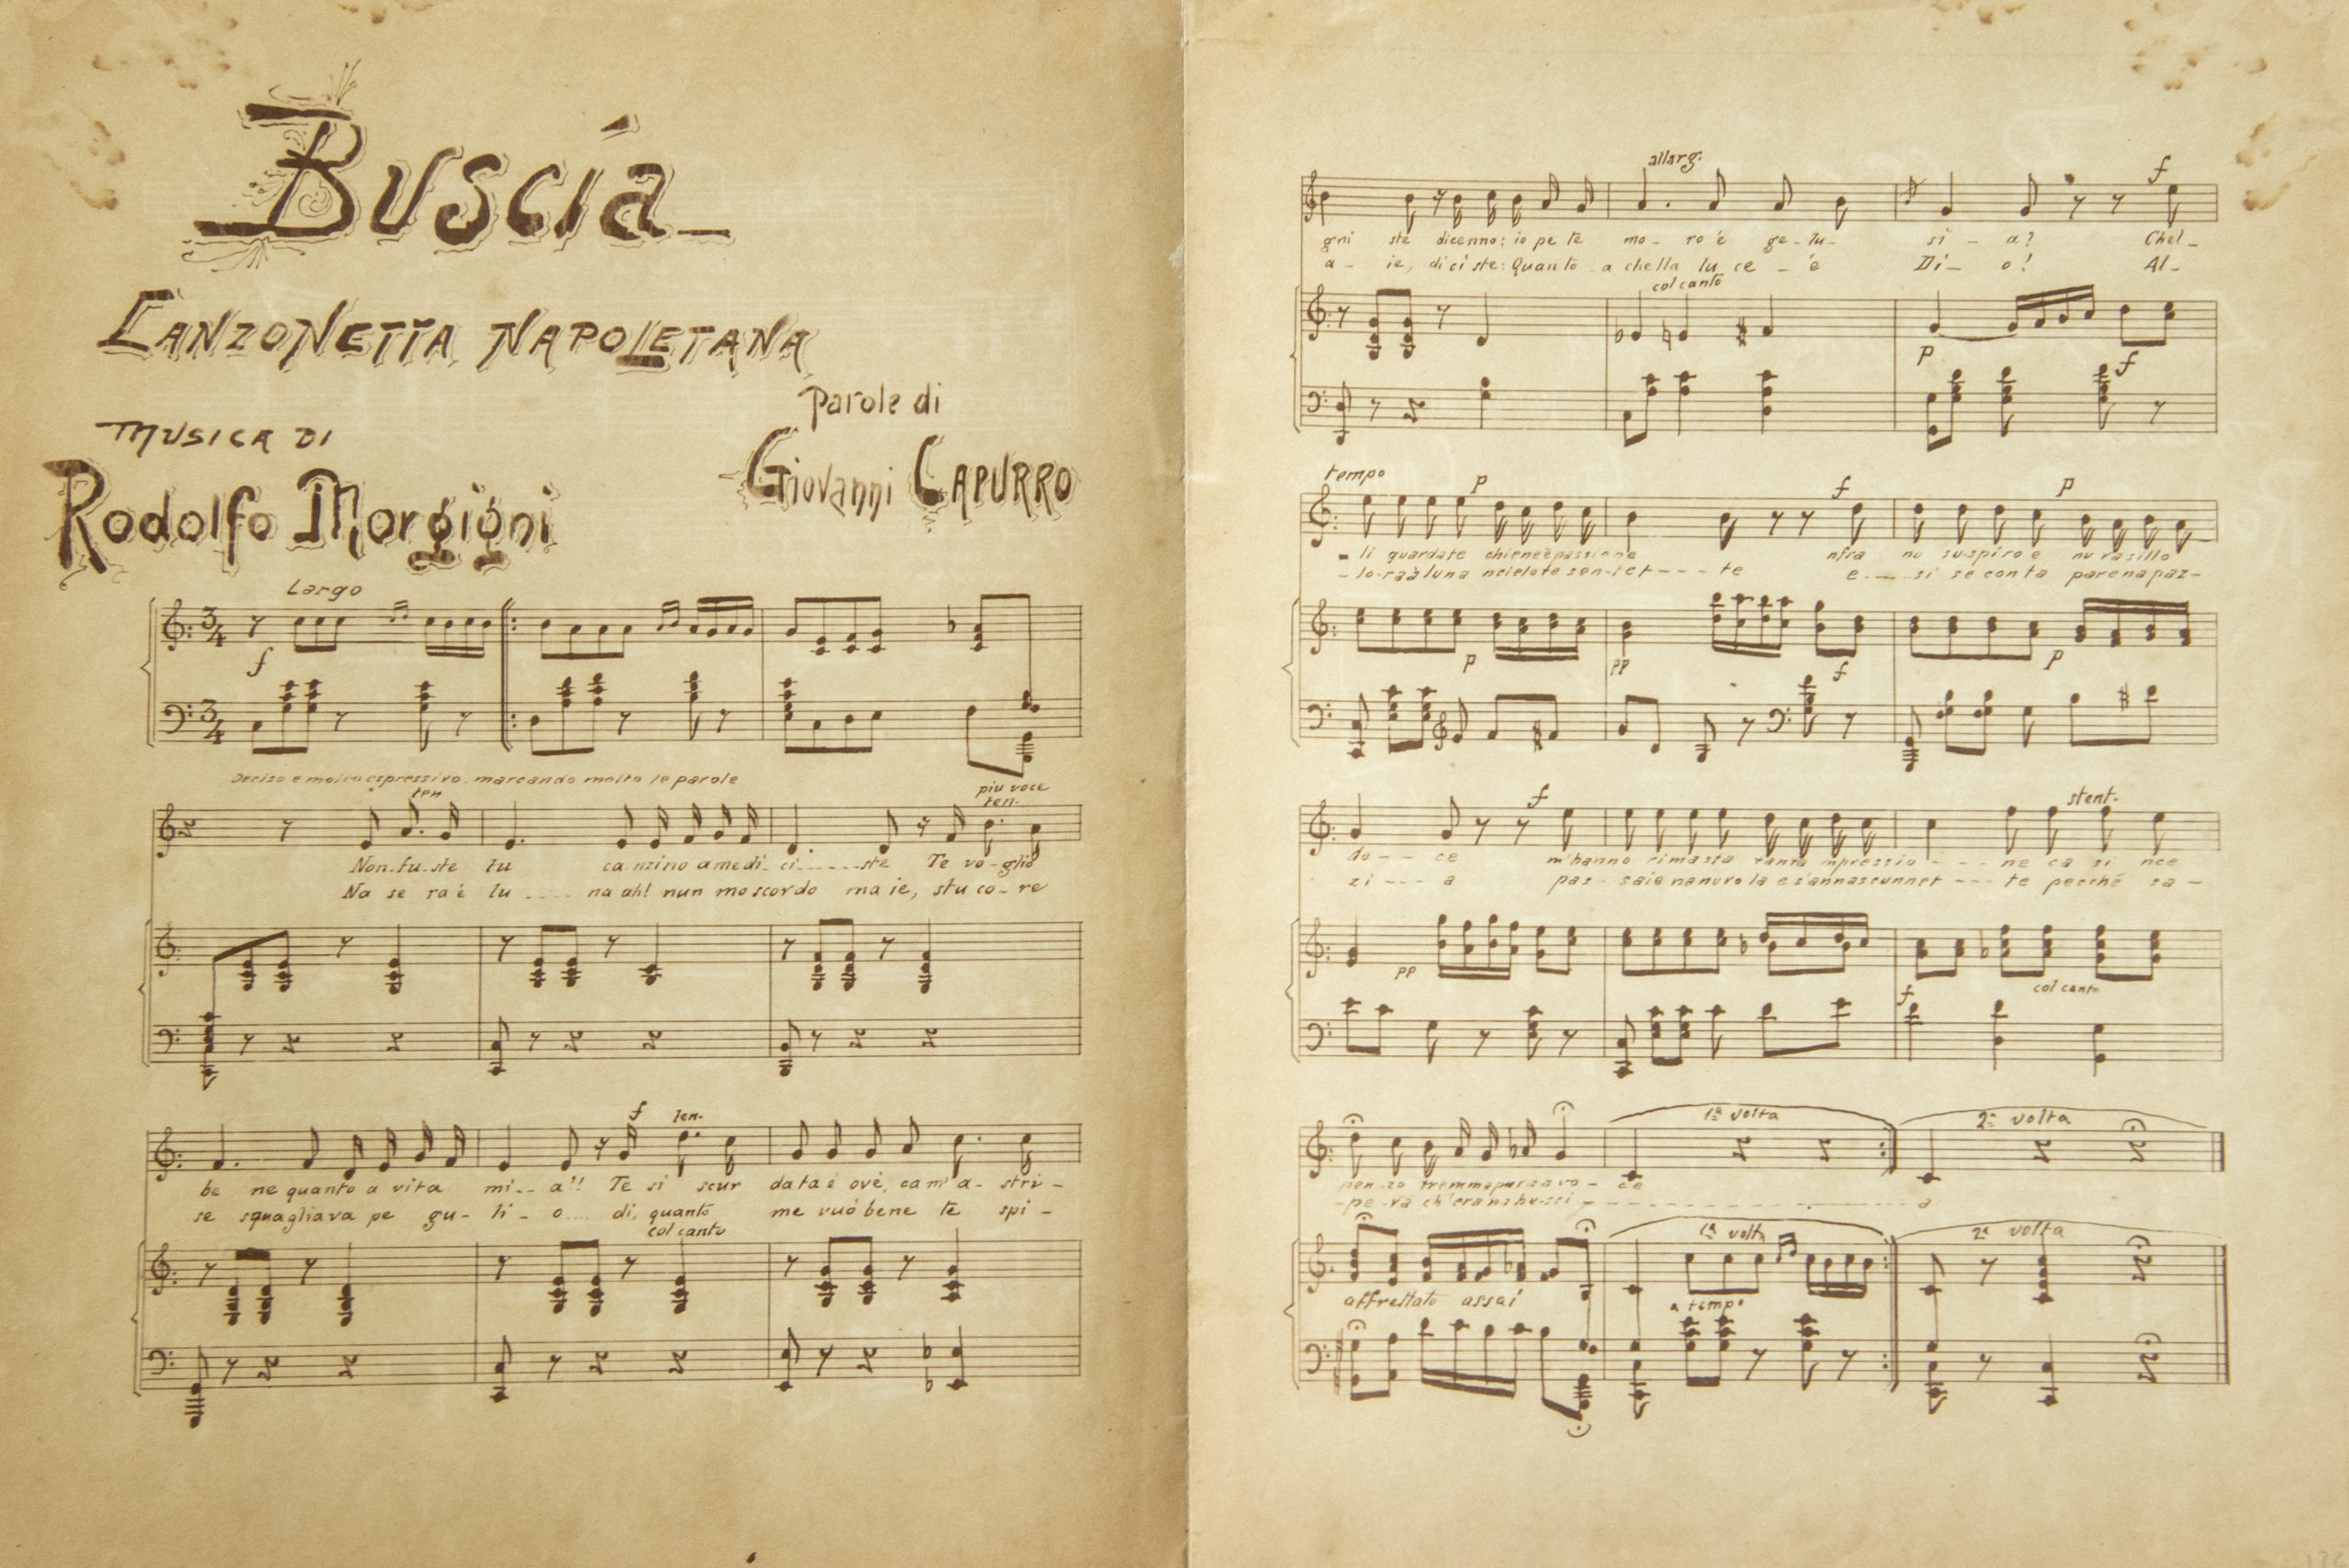 Buscìa
CANZONETTA NAPOLETANA
Parole di
MUSICA DI
Giovanni CAPURRO
Rodolfo Morgigni
Largo
f
Deciso e molto espressivo marcando molto le parole
ten
più voce
ten.
Non-fu-ste tu ca nzino a me di-ci-----ste Te vo-glio
Na se ra é lu .... na ah! nun mo scordo ma ie, stu co-re
f ten.
be ne quanto a vita mi-- a!! Te si scur data é ove, ca m'a-stri-
se squagliava pe gu-li-o.... di, quanto me vuó bene te spi-
col canto
allarg.
f
gni ste dicenno: io pe te mo-ro é ge-lu-si-a? Chel-
a-ie, diciste: Quanto a chella lu ce-'é Di-o! Al-
col canto
p f
tempo
p f p
-li guardate chiene é passione nfra nu suspiro e nu rasillo
-lo-ra à luna ncielo te sen-tet---te e---si se conta pare na paz-
p pp f p
f stent.
do--ce m'hanno rimasta tanta mpressio----ne ca si nce
zi---a pas-saie na nuvola e s'annascunnet---te pecché sa-
pp f col canto
1ª volta 2ª volta
pen-zo tremma pure a vo-ce
-pe-va ch'era na bu-sci------a
1ª volta 2ª volta
affrettato assai a tempo